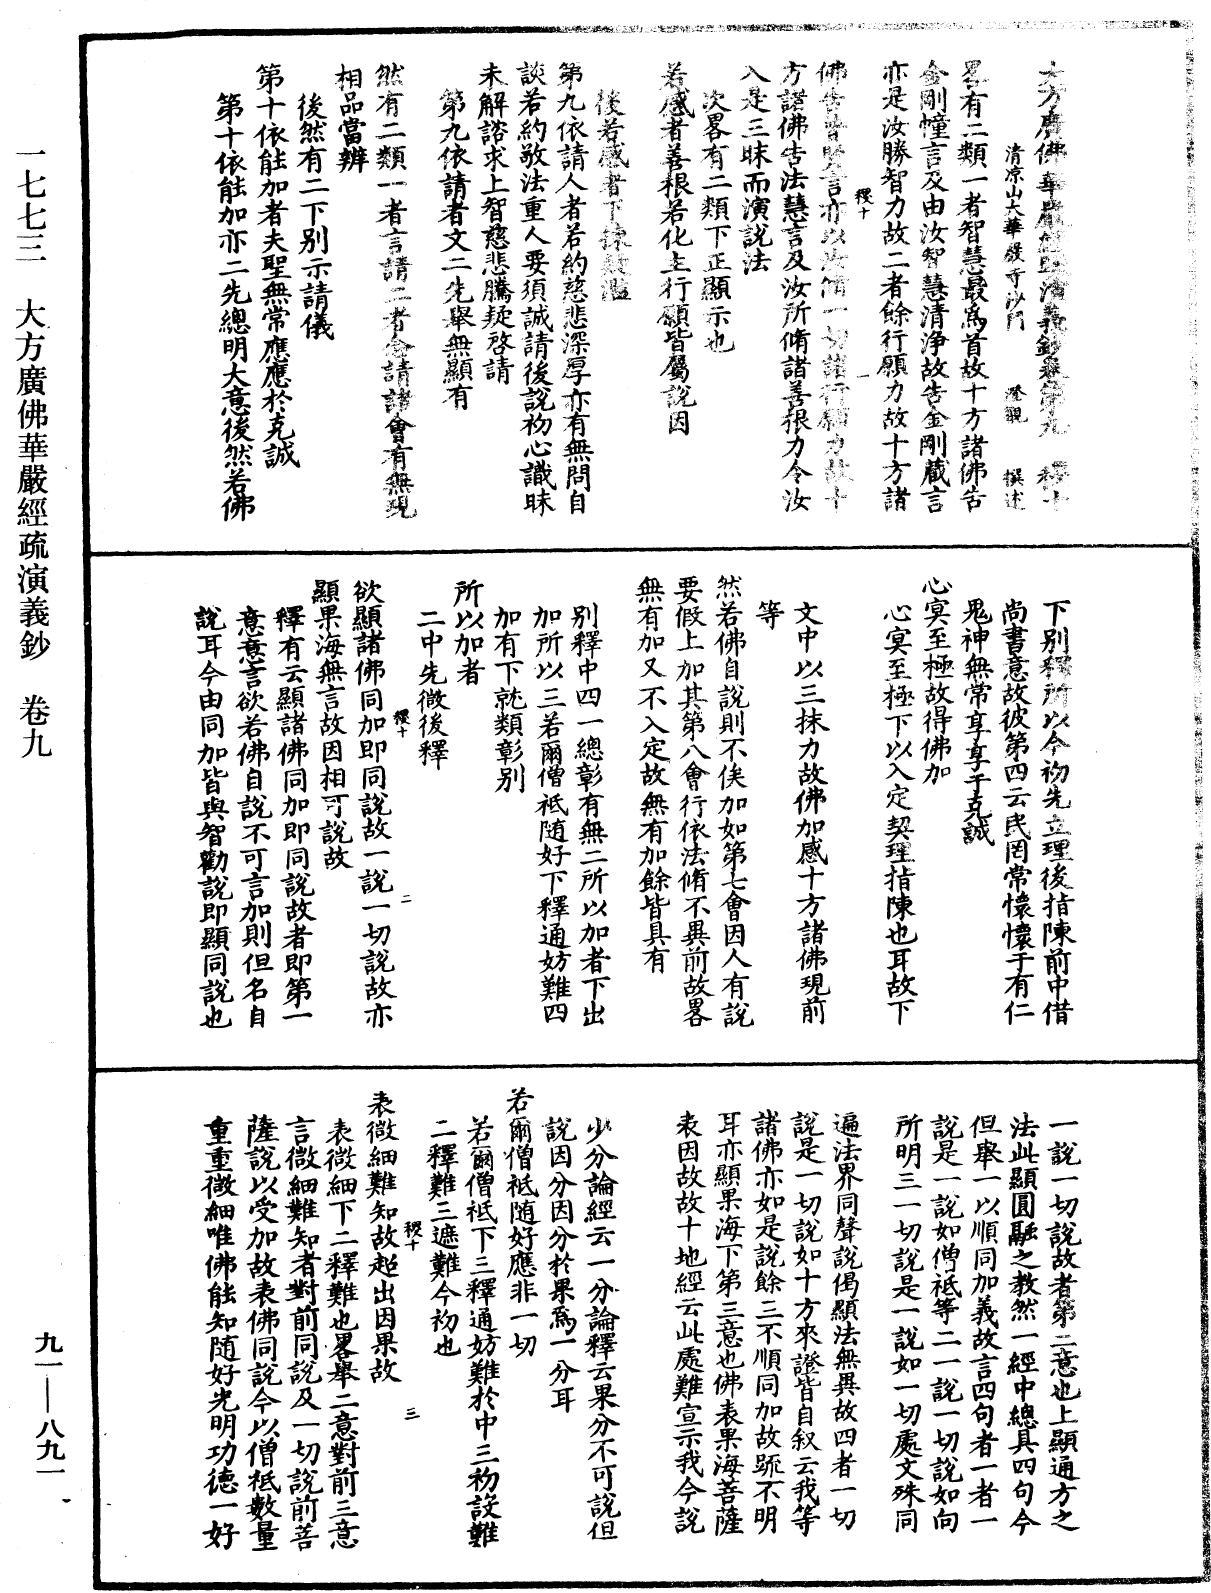 大方廣佛華嚴經疏演義鈔卷第九 稷十
清凉山大華嚴寺沙門 澄觀 撰述
畧有二類一者智慧最爲首故十方諸佛告
金剛幢言及由汝智慧清淨故告金剛藏言
亦是汝勝智力故二者餘行願力故十方諸
稷十 一
佛告普賢言亦以汝脩一切諸行願力故十
方諸佛告法慧言及汝所脩諸善根力令汝
入是三昧而演說法
次畧有二類下正顯示也
若感者善根若化主行願皆屬說因
後若感者下揀
第九依請人者若約慈悲深厚亦有無問自
談若約敬法重人要須誠請後說初心識昧
未解諮求上智慈悲騰疑啓請
第九依請者文二先舉無顯有
然有二類一者言請二者念請諸會有無現
相品當辨
後然有二下別示請儀
第十依能加者夫聖無常應應於克誠
第十依能加亦二先總明大意後然若佛
下別釋所以今初先立理後指陳前中借
尚書意故彼第四云民罔常懷懷于有仁
鬼神無常享享于克誠
心冥至極故得佛加
心冥至極下以入定契理指陳也耳故下
文中以三抹力故佛加感十方諸佛現前
等
然若佛自說則不俟加如第七會因人有說
要假上加其第八會行依法脩不異前故畧
無有加又不入定故無有加餘皆具有
別釋中四一總彰有無二所以加者下出
加所以三若爾僧祇隨好下釋通妨難四
加有下就類彰別
所以加者
二中先徵後釋
稷十 二
欲顯諸佛同加即同說故一說一切說故亦
顯果海無言故因相可說故
釋有云顯諸佛同加即同說故者即第一
意意言欲若佛自說不可言加則但名自
說耳今由同加皆與智勸說即顯同說也
一說一切說故者第二意也上顯通方之
法此顯圓融之教然一經中總具四句今
但舉一以順同加義故言四句者一者一
說是一說如僧祇等二一說一切說如向
所明三一切說是一說如一切處文殊同
遍法界同聲說偈顯法無異故四者一切
說是一切說如十方來證皆自叙云我等
諸佛亦如是說餘三不順同加故䟽不明
耳亦顯果海下第三意也佛表果海菩薩
表因故故十地經云此處難宣示我今說
少分論經云一分論釋云果分不可說但
說因分因分於果爲一分耳
若爾僧祇隨好應非一切
若爾僧祇下三釋通妨難於中三初設難
二釋難三遮難今初也
稷十 三
表微細難知故超出因果故
表微細下二釋難也畧舉二意對前三意
言微細難知者對前同說及一切說前菩
薩說以受加故表佛同說今以僧祇數量
重重微細唯佛能知隨好光明功德一好
一七七三 大方廣佛華嚴經疏演義鈔 卷九
九一——八九一